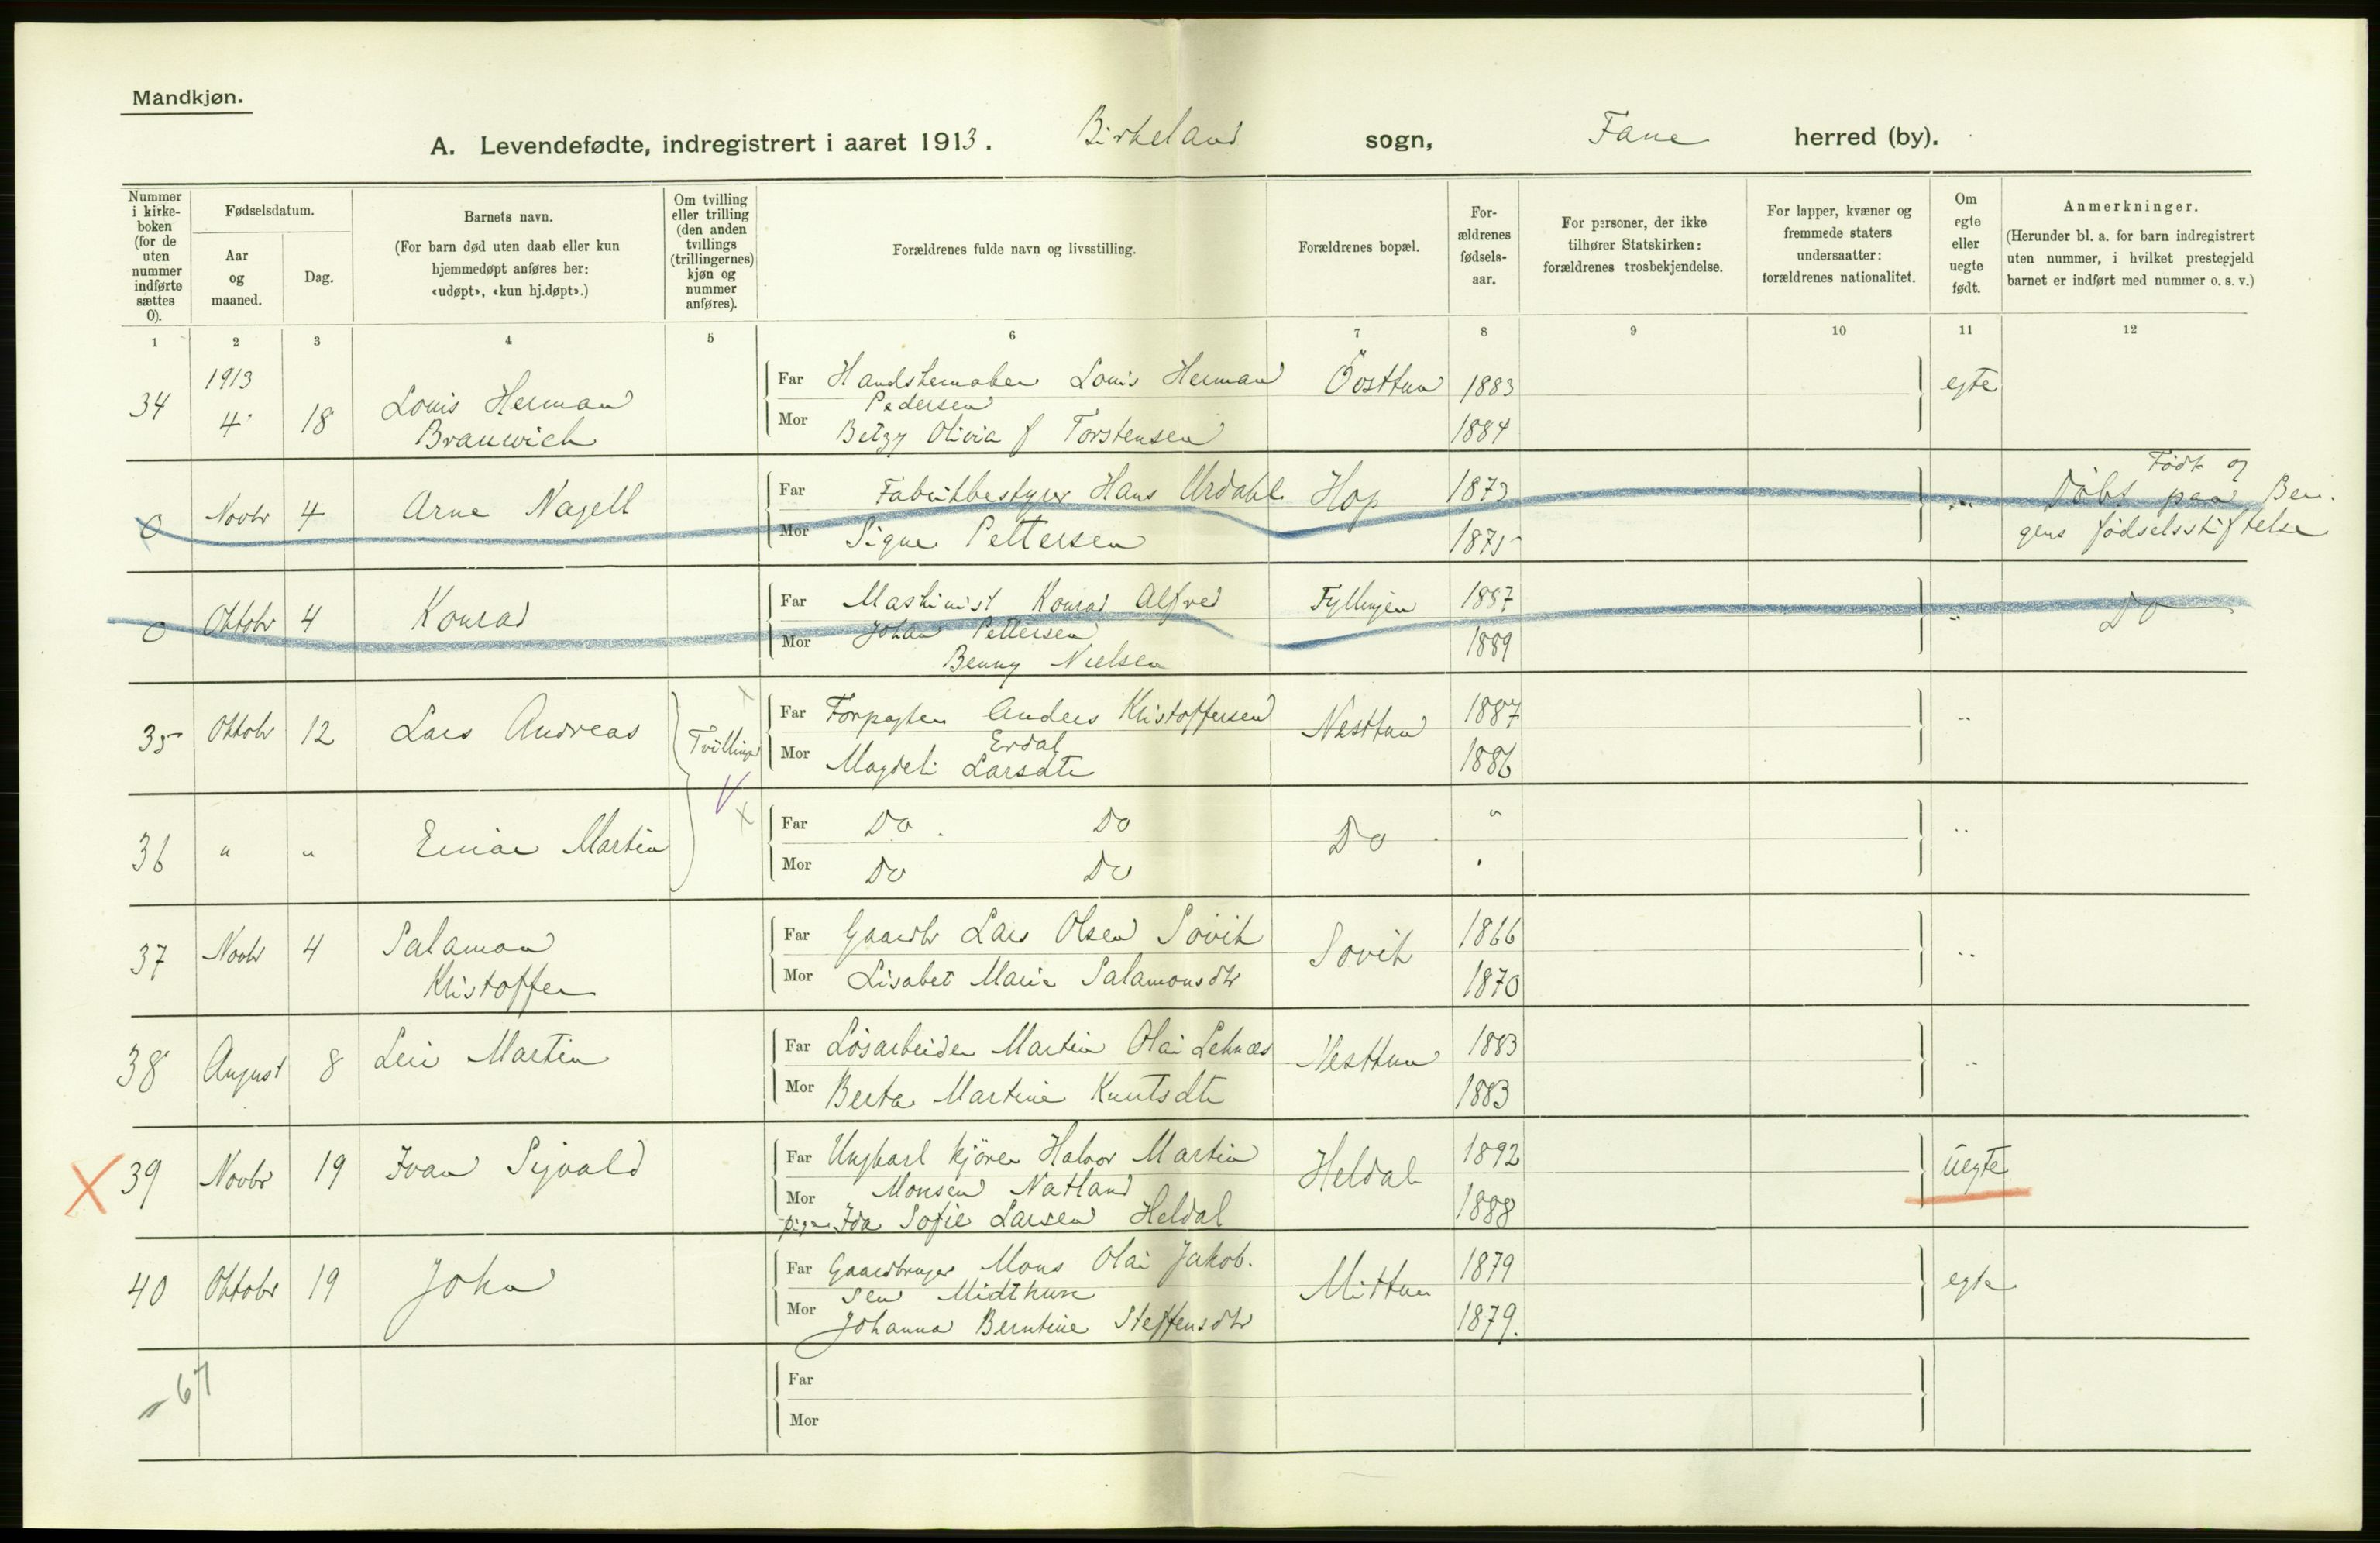 Mandkjøn.
A. Levendefødte, indregistrert i aaret 1913. Birkeland sogn, Fane herred (by).
Nummer i kirkeboken (for de uten nummer indførte sættes 0).
Fødselsdatum.
Aar og maaned.
Dag.
Barnets navn.
(For barn død uten daab eller kun hjemmedøpt anføres her: «udøpt», «kun hj.døpt».)
Om tvilling eller trilling (den anden tvillings (trillingernes) kjøn og nummer anføres).
Forældrenes fulde navn og livsstilling.
Forældrenes bopæl.
Forældrenes fødselsaar.
For personer, der ikke tilhører Statskirken: forældrenes trosbekjendelse.
For lapper, kvæner og fremmede staters undersaatter: forældrenes nationalitet.
Om egte eller uegte født.
Anmerkninger.
(Herunder bl. a. for barn indregistrert uten nummer, i hvilket prestegjeld barnet er indført med nummer o. s. v.)
1 2 3 4 5 6 7 8 9 10 11 12
34 1913 4 18 Louis Herman
Far Handskemaker Louis Herman Pedersen 1883 egte
Mor Betzy Olivia f Torstensen 1884
0 Novbr 4 Arne Nagell
Far Fabrikbestyrer Hans Urdahl Hop 1873 " Født og Døbt paa Ber-
Mor Signe Pettersen 1875 gens fødselsstiftelse
0 Oktobr 4 Konrad
Far Maskinist Konrad Alfred Johan Pettersen Fyllingen 1887 " Do
Mor Benny Nielsen 1889
35 Oktobr 12 Lars Andreas Tvillinger
Far Forpagter Anders Kristoffersen Erdal Nesttun 1887 "
Mor Magdeli Larsdtr 1886
36 " " Einar Martin
Far Do. Do Do. " "
Mor Do Do
37 Novbr 4 Salamon Kristoffer
Far Gaardbr Lars Olsen Søvik Søvik 1866 "
Mor Lisabet Marie Salamonsdtr 1870
38 August 8 Martin
Far Løsarbeider Martin Olai Lehnæs Nesttun 1883 "
Mor Berta Martine Knutsdtr 1883
X 39 Novbr 19 Ivan Sigvald
Far Ungkarl kjörer Halvor Martin Monsen Natland Heldal 1892 Uegte
Mor pige Ida Sofie Larsen Heldal 1888
40 Oktobr 19 John
Far Gaardbruger Mons Olai Jakobsen Midthun Mittun 1879 egte
Mor Johanna Berntine Steffensdtr 1879.
67
Far
Mor